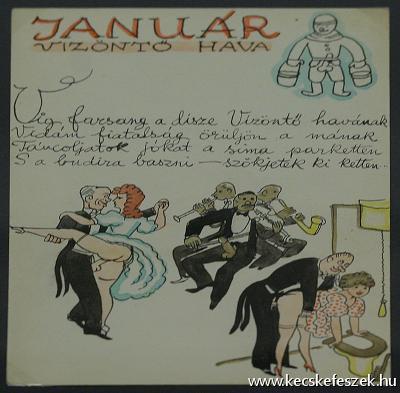 JANUÁR
VIZÖNTŐ HAVA
Víg farsang a dísze Vízöntő havának
Vidám fiatalság örüljön a mának
Táncoljatok jókat a síma parketten
S a budira baszni — szökjetek ki ketten..
www.kecskefeszek.hu